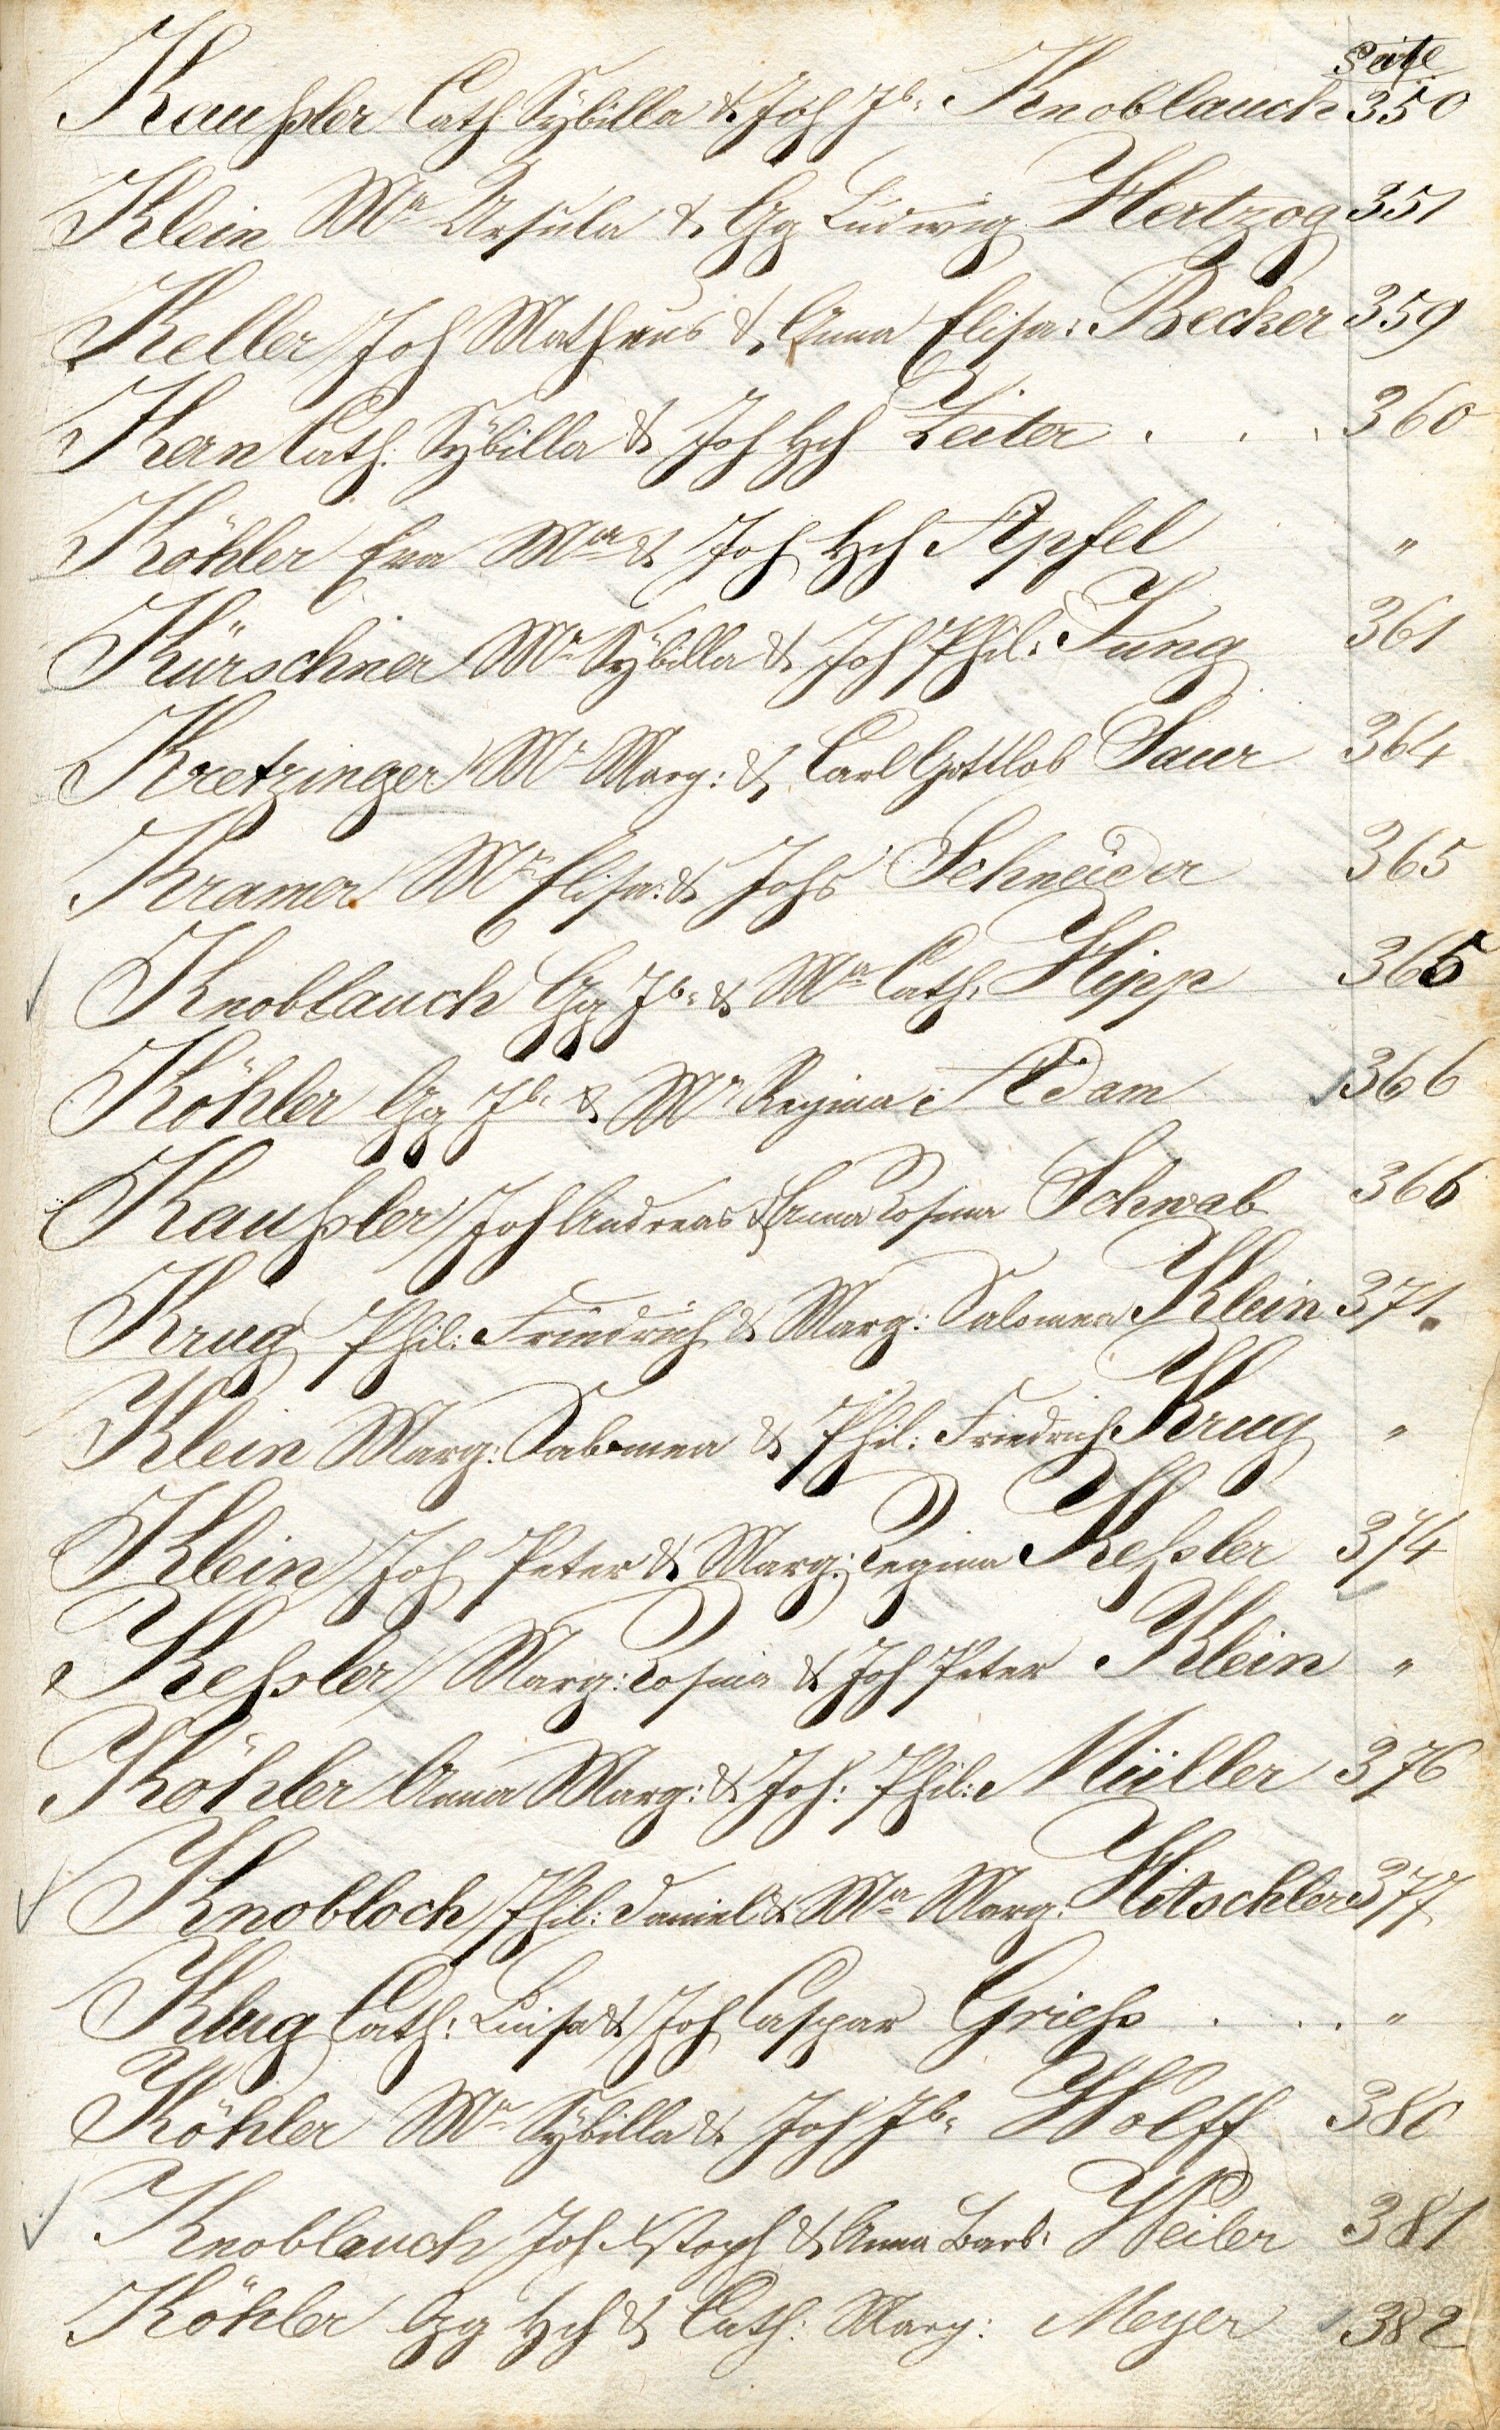 Seite
Kaußler Cath Sÿbilla & Joh Jb: Knoblauch 350
Klein Mª Ursula & Gg Ludwig Hertzog 351
Keller Joh Matheus & Anna Elisa: Becker 359
Kern Cath: Sÿbilla & Joh Hch Leiter . . . 360
Köhler Eva Mª & Joh Hch Apfel "
Kürschner Mª Sÿbilla & Joh Phil: Jung 361
Kretzinger Mª Marg: & Carl Gottlob Saur 364
Kramer Mª Elisa: & Johs Schneider 365
Knoblauch Gg Jb: & Mª Cath: Hipp 365
Köhler Gg Jb: & Mª Regina Adam 366
Kaußler Joh Andreas & Anna Rosina Schwab 366
Krug Phil: Friedrich & Marg: Salomea Klein 371.
Klein Marg: Salomea & Phil: Friedrich Krug "
Klein Joh Peter & Marg: Regina Keßler 374
Keßler Marg: Rosina & Joh Peter Klein "
Köhler Anna Marg: & Joh: Phil: Müller 376
Knobloch Phil: Daniel & Mª Marg: Hitschler 377
Klug Cath: Luisa & Joh Caspar Grieß . . . "
Köhler Mª Sÿbilla & Joh Jb: Wolff 380
Knoblauch Joh Xstoph & Anna Barb: Weiler 381
Köhler Gg Hch & Cath: Marg: Meyer 382